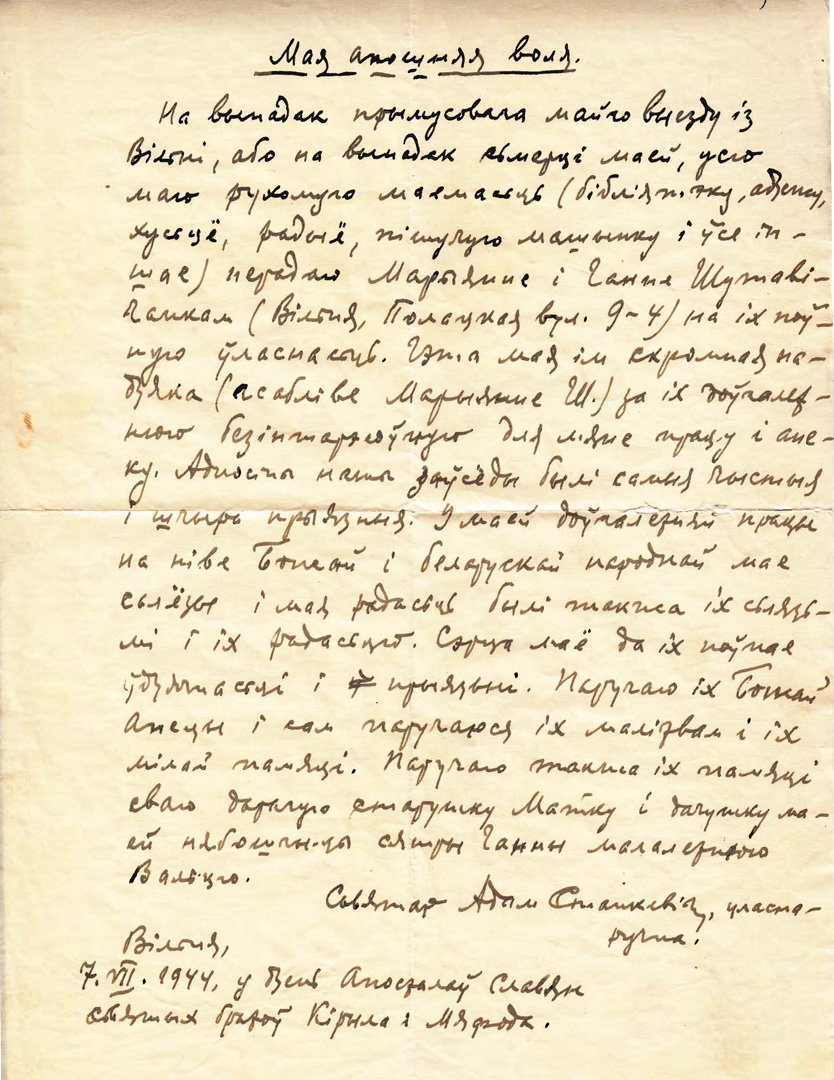 Мая апошняя воля.
На выпадак прымусовага майго выезду із
Вільні, або на выпадак сьмерці маей, усю
маю рухомую маемасьць (бібліятэку, адзежу,
хусьцё, радыё, пішучую машынку і ўсе ін-
шае) перадаю Марыяне і Ганне Шутаві-
чанкам (Вільня, Полацкая вул. 9-4) на іх поў-
ную ўласнасьць. Гэта мая ім скромная па-
дзяка (асабліве Марыяне Ш.) за іх доўгалет-
нюю безінтэрэсоўную для мяне працу і апе-
ку. Адносіны нашы заўсёды былі самыя чыстыя
і шчыра прыязныя. У маей доўгалетняй працы
на ніве Божай і беларускай народнай мае
сьлёзы і мая радасьць былі такжа іх сьлязь-
мі і іх радасьцю. Сэрца маё да іх поўнае
ўдзячнасьці і прыязьні. Паручаю іх Божай
Апецы і сам паручаюся іх малітвам і іх
мілай памяці. Паручаю такжа іх памяці
сваю дарагую старушку Матку і дачушку ма-
ей нябошчыцы сястры Ганны малалетнюю
Вальцю.
Сьвятар Адам Станкевіч, уласна-
ручна.
Вільня,
7.VII.1944, у дзень Апосталаў Славян
сьвятых братоў Кірыла і Мяфода.